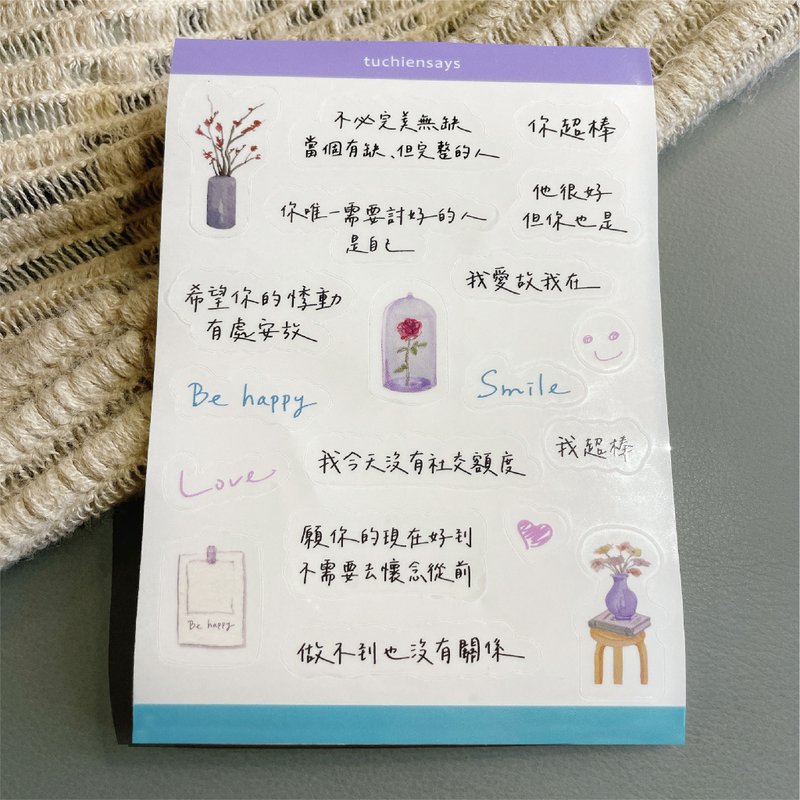 tuchiensays
不必完美無缺
當個有缺、但完整的人
你超棒
他很好
但你也是
你唯一需要討好的人
是自己
我愛故我在
希望你的悸動
有處安放
Be happy
Smile
我超棒
我今天沒有社交額度
Love
願你的現在好到
不需要去懷念從前
Be happy
做不到也沒有關係